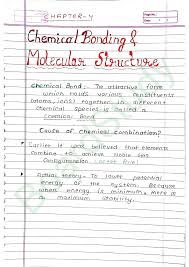 CHAPTER-4
Page No.
Date
Chemical Bonding &
Molecular Structure
Chemical Bond:- The attractive force
which holds various constituents
(atoms, ions) together in different
chemical species is called a
chemical Bond.
Cause of chemical combination?
Earlier it was believed that elements
combine to achieve noble gas
Configuration
Actual theory - To lower potential
energy of the system. Because
when energy is minimum, there is
maximum stability.